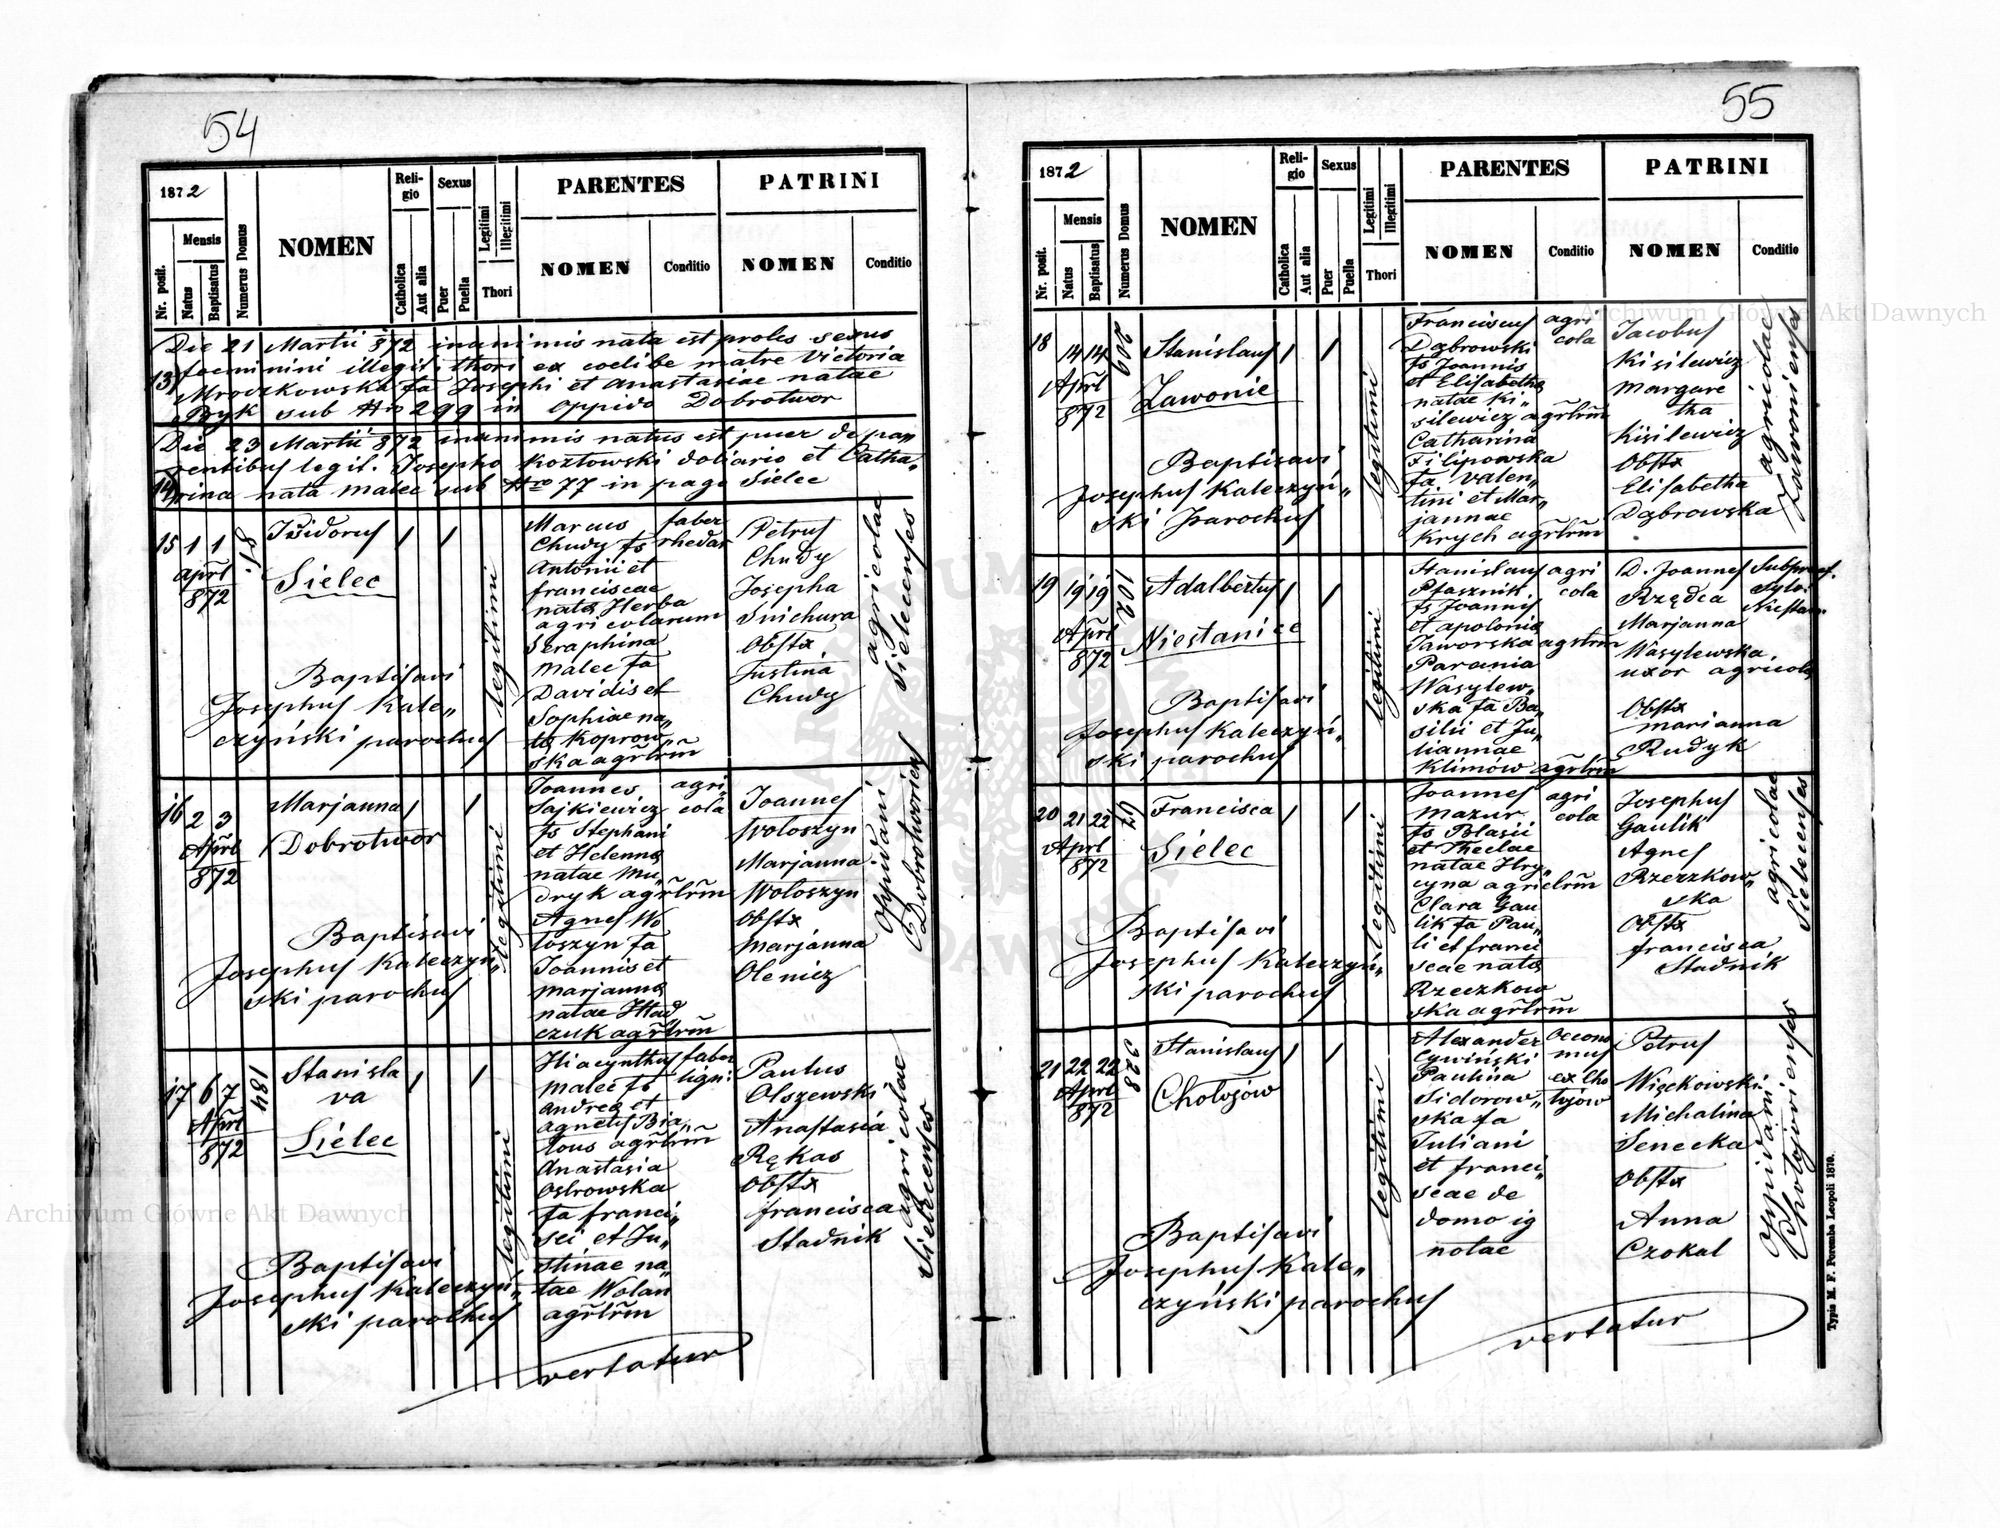 54
1872
Mensis
Nr. posit.
Natus
Baptisatus
Numerus Domus
NOMEN
Religio
Catholica
Aut alia
Sexus
Puer
Puella
Legitimi
Illegitimi
Thori
PARENTES
NOMEN
Conditio
PATRINI
NOMEN
Conditio
Die 21 Martii 872 inanimis nata est proles sexus
foeminini illegit. thori ex coelibe matre Victoria
13 Mroczkowska fa Josephi et Anastasiae natae
Bryk sub Nro 299 in oppido Dobrotwor
Die 23 Martii 872 inanimis natus est puer de pa„
rentibus legit. Josepho Kozłowski doliario et Catha„
14 rina nata Malec sub Nro 77 in pago Sielec
15 1 1
Aprl
872
81.
Isidorus
Sielec
Baptisavi
Josephus Kale„
czyński parochus
legitimi
Marcus faber
Chudy fs rhedar
Antonii et
franciscae
natae Herba
agricolarum
Seraphina
Malec fa
Davidis et
Sophiae na„
ta Koprow„
ska agrlrm
Petrus
Chudy
Josepha
Snichura
Obstx
Justina
Chudy
agricolae
Sielecenses
16 2 3
Aprl
872
1
Marjanna
Dobrotwor
Baptisavi
Josephus Kaleczyń„
ski parochus
legitimi
Joannes agri
Sajkiewicz cola
fs Stephani
et Helenna
natae Mu„
dryk agrlrm
Agnes Wo
łoszyn fa
Joannis et
Marjanna
natae Had
czuk agrlrm
Joannes
Wołoszyn
Marjanna
Wołoszyn
Obstx
Marjanna
Olenicz
Oppidani
Dobrotworien
17 6 7
Aprl
872
184
Stanisla
va
Sielec
Baptisavi
Josephus Kaleczyń„
ski parochus
legitimi
Hiacynthus faber
Malec fs ligni
Andrea et
Agnetis Bia„
lous agrlrm
Anastasia
Ostrowska
fa franci„
sci et Ju„
stinae na„
tae Wolan
agrlrm
Paulus
Olszewski
Anastasia
Rękas
Obstx
francisca
Stadnik
agricolae
Sielecenses
vertatur
55
1872
Mensis
Nr. posit.
Natus
Baptisatus
Numerus Domus
NOMEN
Religio
Catholica
Aut alia
Sexus
Puer
Puella
Legitimi
Illegitimi
Thori
PARENTES
NOMEN
Conditio
PATRINI
NOMEN
Conditio
18 14 14
Aprl
872
209
Stanislaus
Zawonie
Baptisavi
Josephus Kaleczyń„
ski parochus
legitimi
Franciscus agri
Dąbrowski cola
fs Joannis
et Elisabetha
natae Ki„
silewicz agrlrm
Catharina
Filipowska
fa Valen„
tini et Mar„
jannae
Krych agrlrm
Jacobus
Kisilewicz
Margare
tha
Kisilewicz
Obstx
Elisabetha
Dąbrowska
agricolae
Zawonienses
19 19 19
Aprl
872
102
Adalbertus
Niestanice
Baptisavi
Josephus Kaleczyń„
ski parochus
legitimi
Stanislaus agri
Ptasznik cola
fs Joannis
et apolonia
Jaworska agrlrm
Parania
Wasylew„
ska fa Ba„
silii et Ju„
liannae
Klimów agrlrm
D. Joannes
Rządca
Marjanna
Wasylewska
uxor agricolae
Obstx
Marianna
Rudyk
Subpraef.
Sylv.
Niestan.
20 21 22
Aprl
872
Francisca
Sielec
Baptisavi
Josephus Kaleczyń„
ski parochus
legitimi
Joannes agri
Mazur cola
fs Blasii
et Theclae
natae Hry„
cyna agriclrm
Clara Gau
lik fa Pau„
li et franci
scae nata
Rzeczkow
ska agrlrm
Josephus
Gaulik
Agnes
Rzeczkow„
ska
Obstx
francisca
Stadnik
agricolae
Sielecenses
21 22 22
Aprl
872
328
Stanislaus
Chołojów
Baptisavi
Josephus Kale„
czyński parochus
legitimi
Alexander Oecono
Cywiński mus
Paulina ex Cho
Sidorow„ łojow
ska fa
Juliani
et franci„
scae de
domo ig
notae
Petrus
Więckowski
Michalina
Senecka
Obstx
Anna
Czokal
Oppidani
Chołojovienses
vertatur
Typis M. F. Poremba Leopoli 1870.
Archiwum Główne Akt Dawnych
Archiwum Główne Akt Dawnych
ARCHIWUM GŁÓWNE AKT DAWNYCH